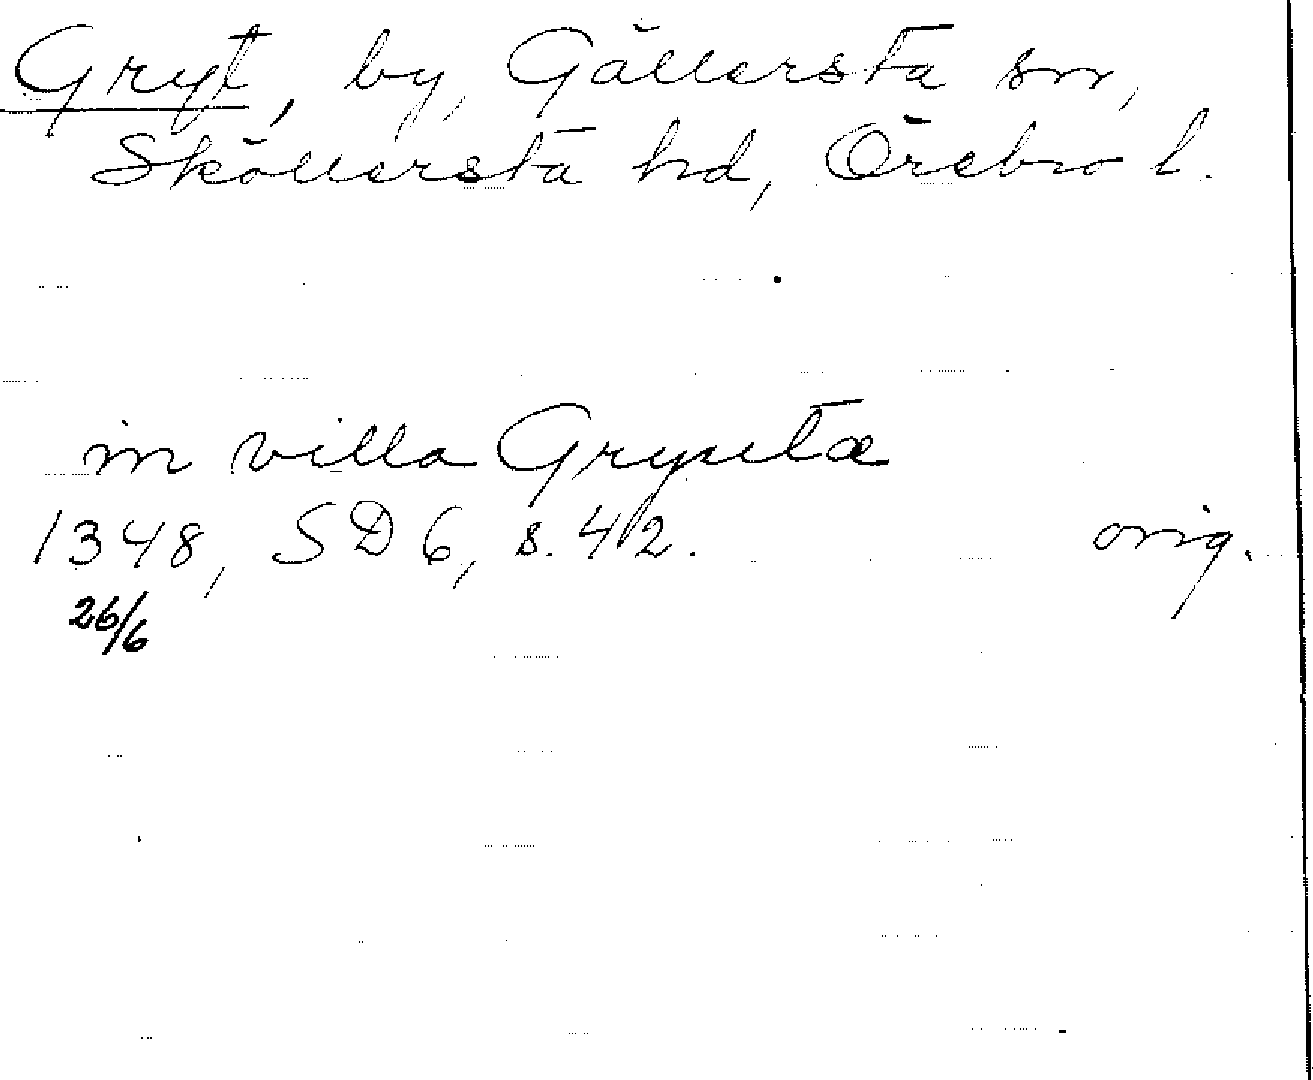 Gryt, by, Gällersta sn,
Sköllersta hd, Örebro l.
in villa Grysetæ
1348, SD 6, s. 42. orig.
26/6